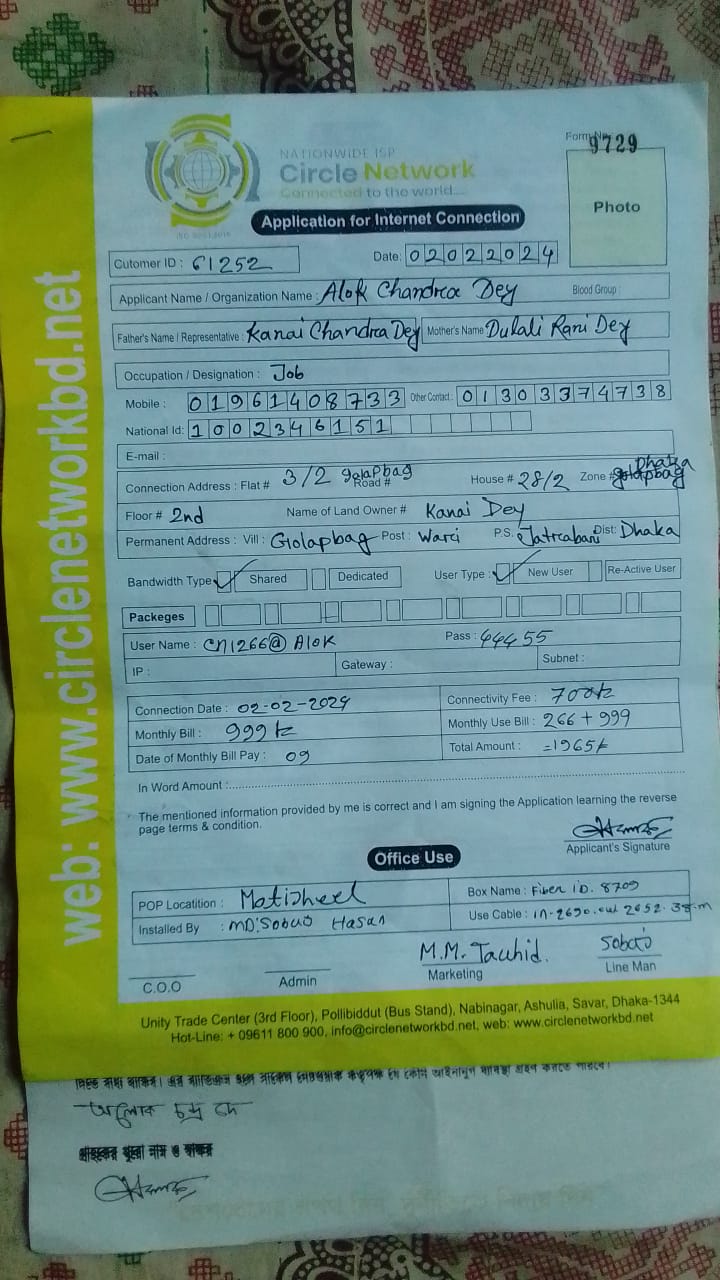 Form No. 9729
NATIONWIDE ISP
Circle Network
Connected to the world....
ISO 9001:2015
Photo
Application for Internet Connection
Cutomer ID : 61252
Date: 02022024
Applicant Name / Organization Name : Alok Chandra Dey Blood Group :
Father's Name / Representative : Kanai Chandra Dey Mother's Name Dulali Rani Dey
Occupation / Designation : Job
Mobile : 01961408733 Other Contact : 01303374738
National Id: 1002346151
E-mail :
Connection Address : Flat # 3/2 golapbag Road # House # 28/2 Zone # golapbag Dhaka
Floor # 2nd Name of Land Owner # Kanai Dey
Permanent Address : Vill : Golapbag Post : Wari P.S. Jatrabari Dist: Dhaka
Bandwidth Type Shared Dedicated User Type : New User Re-Active User
Packeges
User Name : CN1266@ Alok Pass : 44455
IP : Gateway : Subnet :
Connection Date : 02-02-2024 Connectivity Fee : 700tk
Monthly Bill : 999 tk Monthly Use Bill : 266 + 999
Date of Monthly Bill Pay : 09 Total Amount : =1965/
In Word Amount :
The mentioned information provided by me is correct and I am signing the Application learning the reverse
page terms & condition.
Applicant's Signature
Office Use
POP Locatition : Motijheel Box Name : Fiber iD. 8709
Installed By : MD: Sobuj Hasan Use Cable : in-2690.out 2652.38.m
M.M. Tauhid.
C.O.O Admin Marketing Line Man
Unity Trade Center (3rd Floor), Pollibiddut (Bus Stand), Nabinagar, Ashulia, Savar, Dhaka-1344
Hot-Line: + 09611 800 900, info@circlenetworkbd.net, web: www.circlenetworkbd.net
web: www.circlenetworkbd.net
অলোক চন্দ্র দে